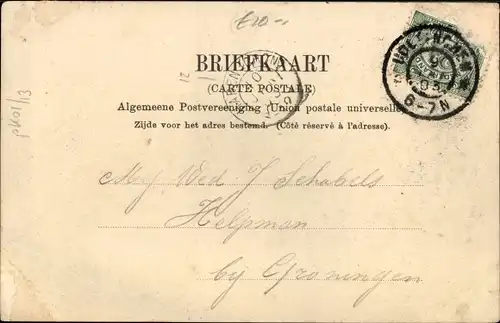 £20-
BRIEFKAART
(CARTE POSTALE)
Algemeene Postvereeniging (Union postale universelle).
Zijde voor het adres bestemd. (Côté réservé à l'adresse).
6-7N
Mej Wed J Schabels
Helpman
bij Groningen